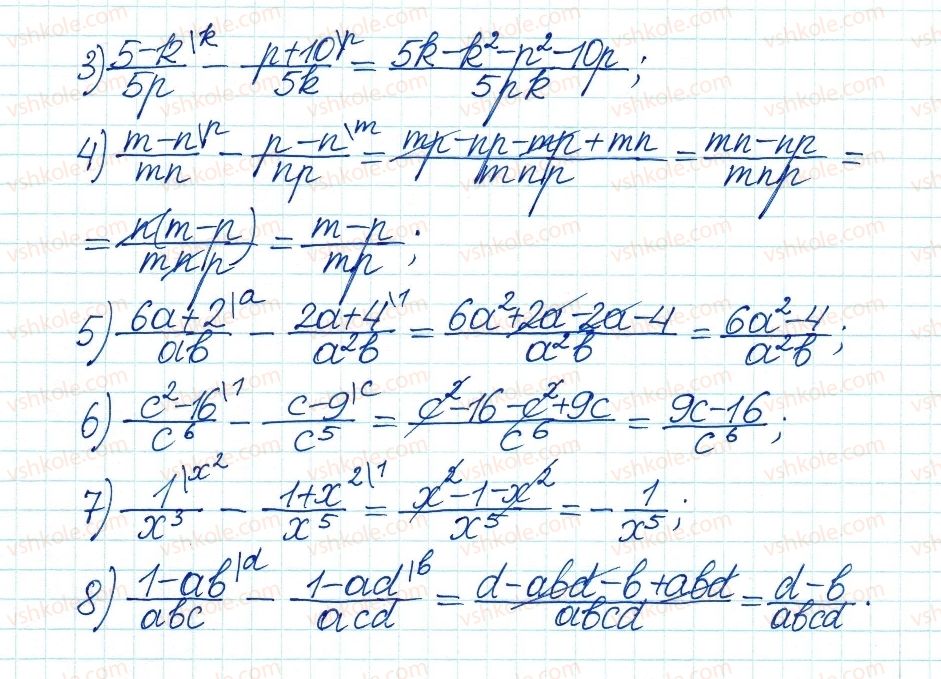 3) (5-k\k)/(5p) - (p+10\p)/(5k) = (5k-k²-p²-10p)/(5pk);
4) (m-n\p)/(mn) - (p-n\m)/(np) = (mp-np-mp+mn)/(mnp) = (mn-np)/(mnp) =
= (n(m-p))/(mnp) = (m-p)/(mp);
5) (6a+2\a)/(ab) - (2a+4\1)/(a²b) = (6a²+2a-2a-4)/(a²b) = (6a²-4)/(a²b);
6) (c²-16\1)/(c⁶) - (c-9\c)/(c⁵) = (c²-16-c²+9c)/(c⁶) = (9c-16)/(c⁶);
7) (1\x²)/(x³) - (1+x²\1)/(x⁵) = (x²-1-x²)/(x⁵) = -1/(x⁵);
8) (1-ab\d)/(abc) - (1-ad\b)/(acd) = (d-abd-b+abd)/(abcd) = (d-b)/(abcd).